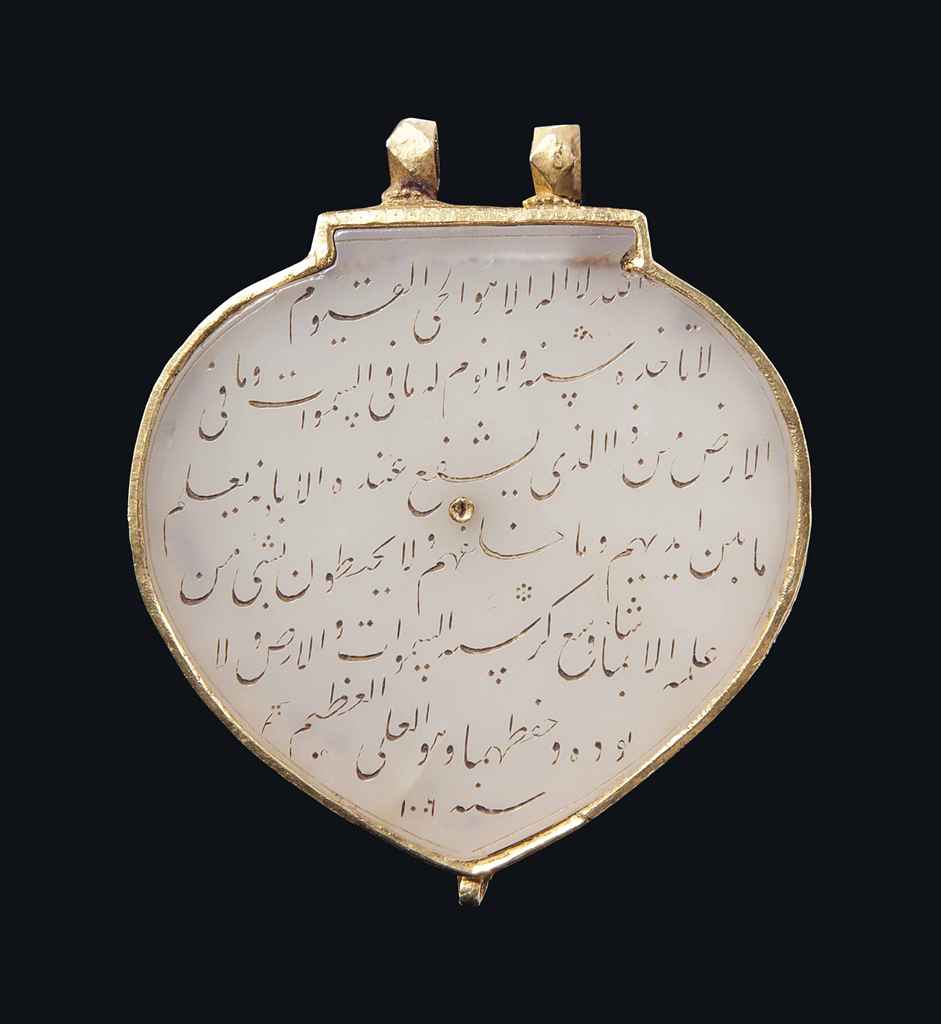 الله لا اله الا هو الحی القیوم
لا تاخذه سنه ولا نوم له ما فی السموات وما فی
الارض من ذا الذی یشفع عنده الا باذنه یعلم
ما بین ایدیهم وما خلفهم ولا یحیطون بشیء من
علمه الا بما شا وسع کرسیه السموات والارض ولا
یوده حفظهما وهو العلی العظیم
سنه ۱۰۰۶